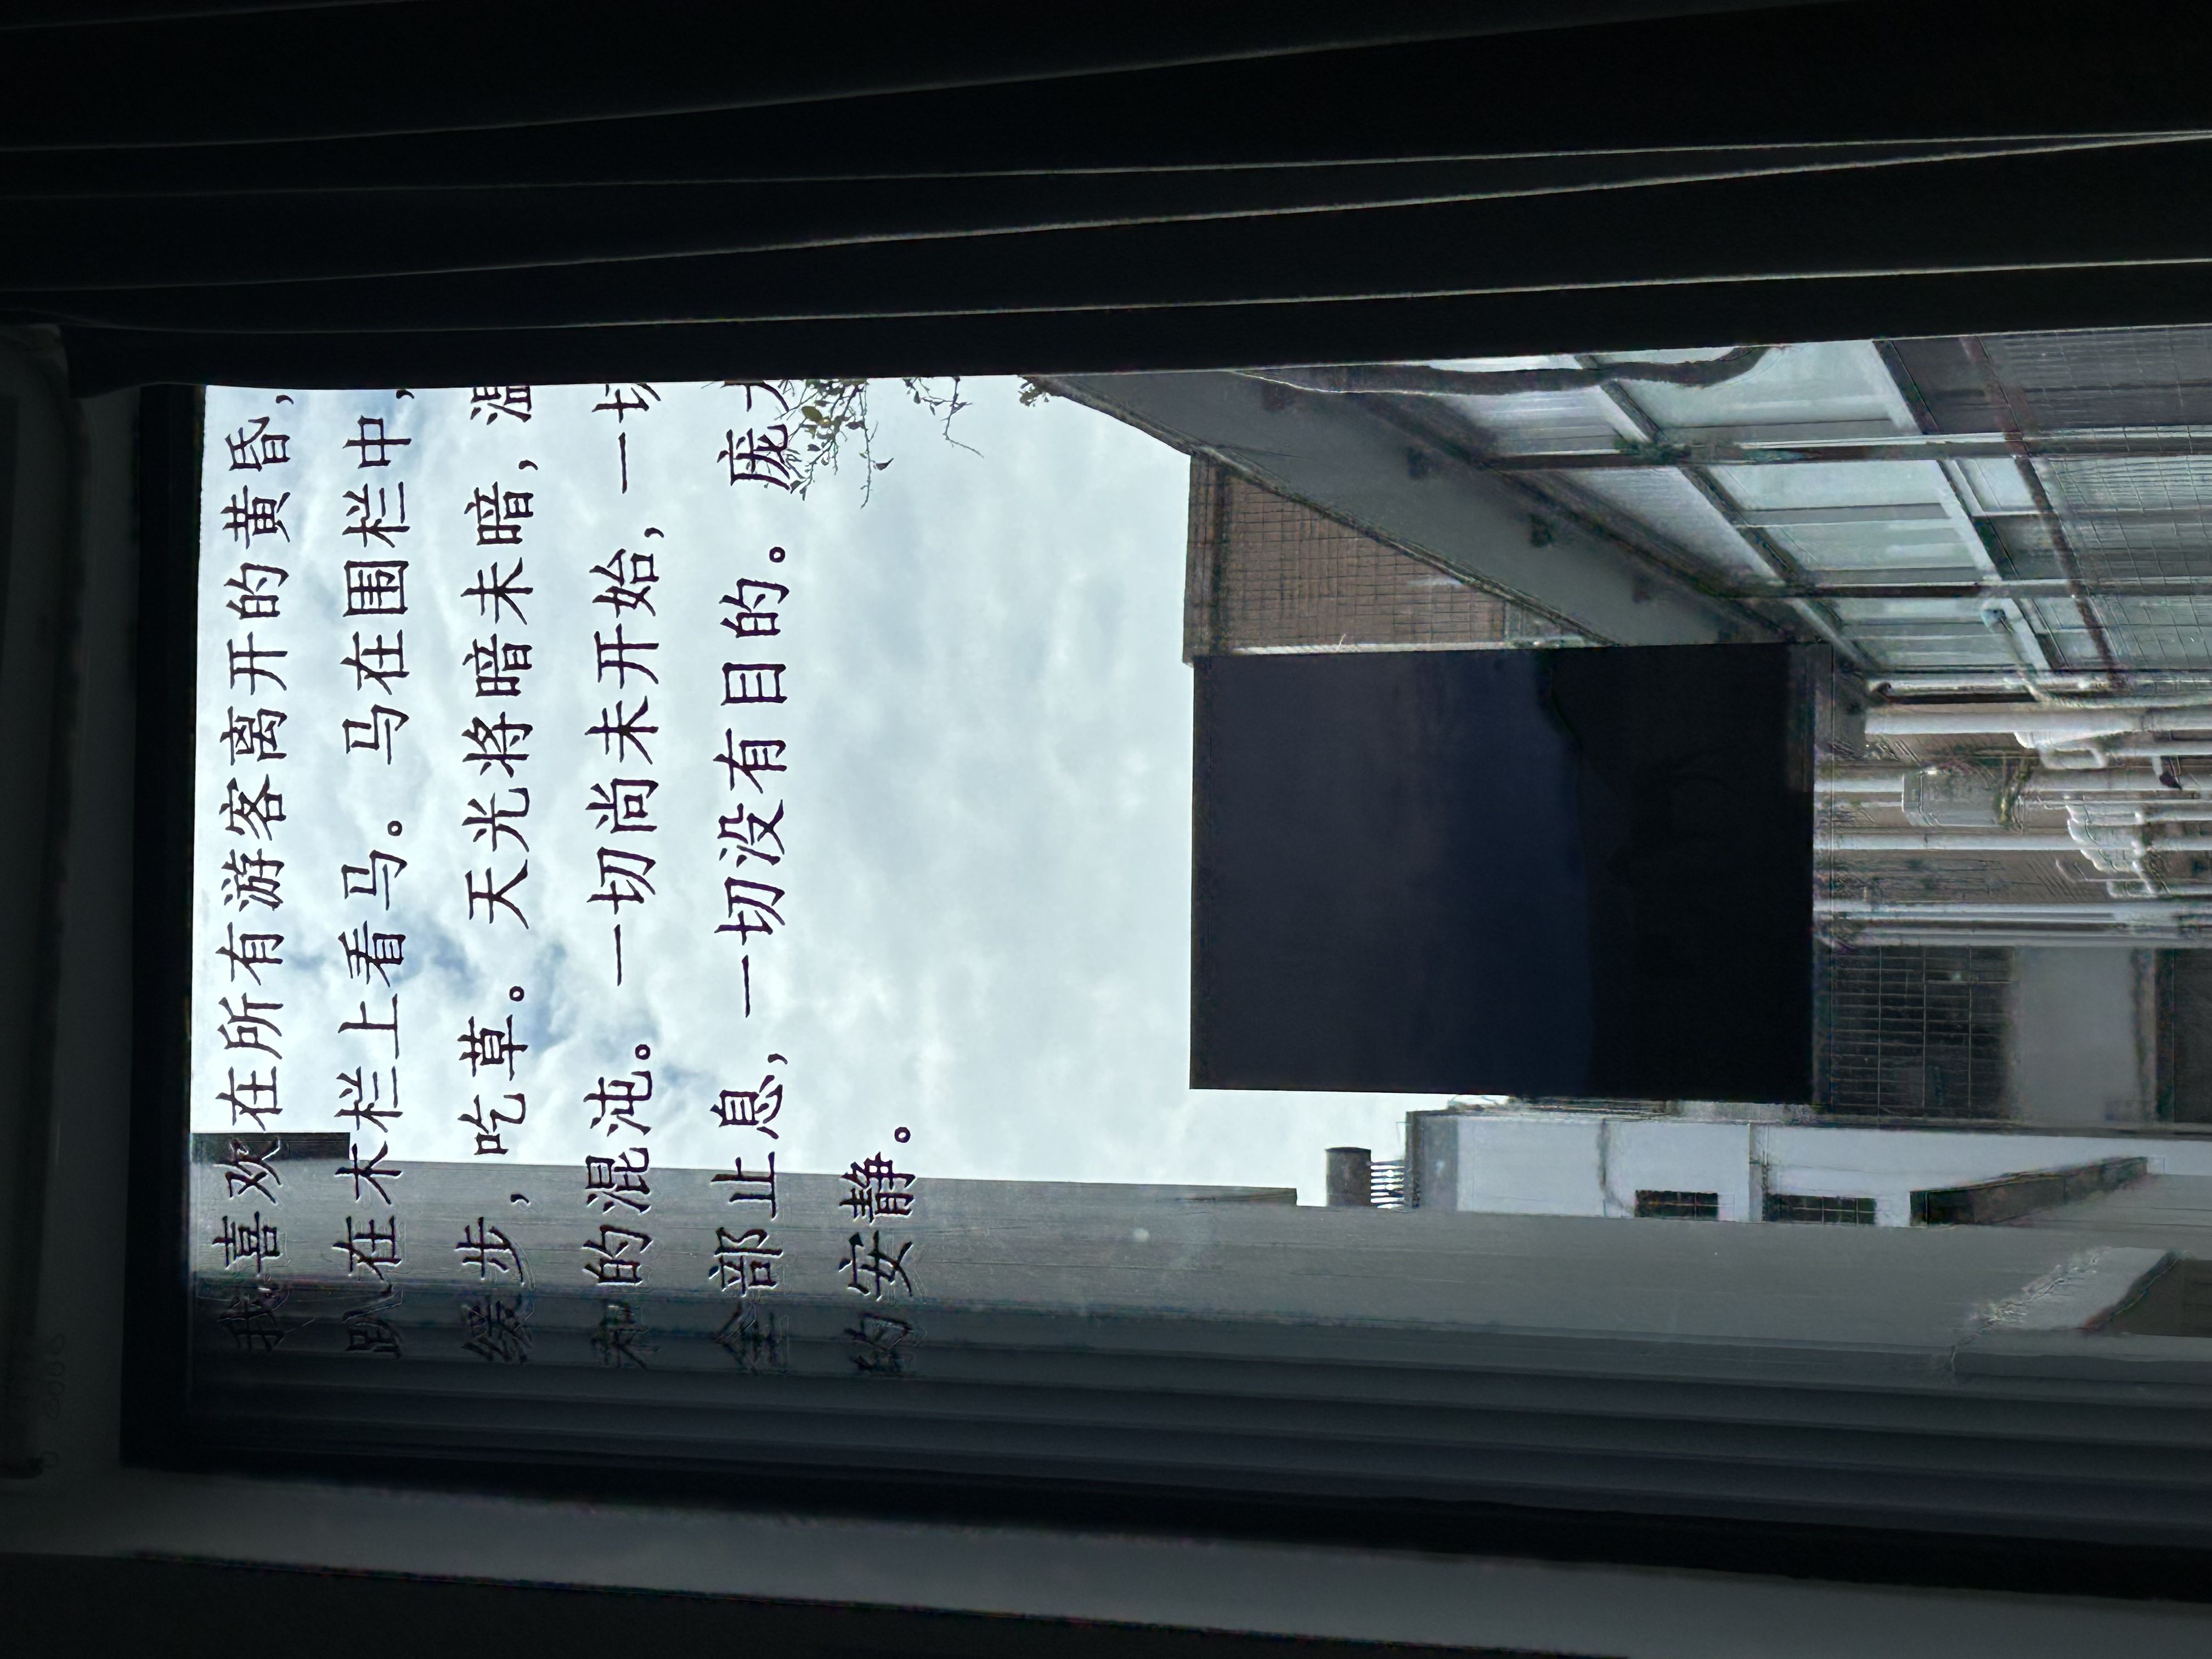 我喜欢在所有游客离开的黄昏，
趴在木栏上看马。马在围栏中，
缓步，吃草。天光将暗未暗，温
和的混沌。一切尚未开始，一切
全部止息，一切没有目的。庞大
的安静。